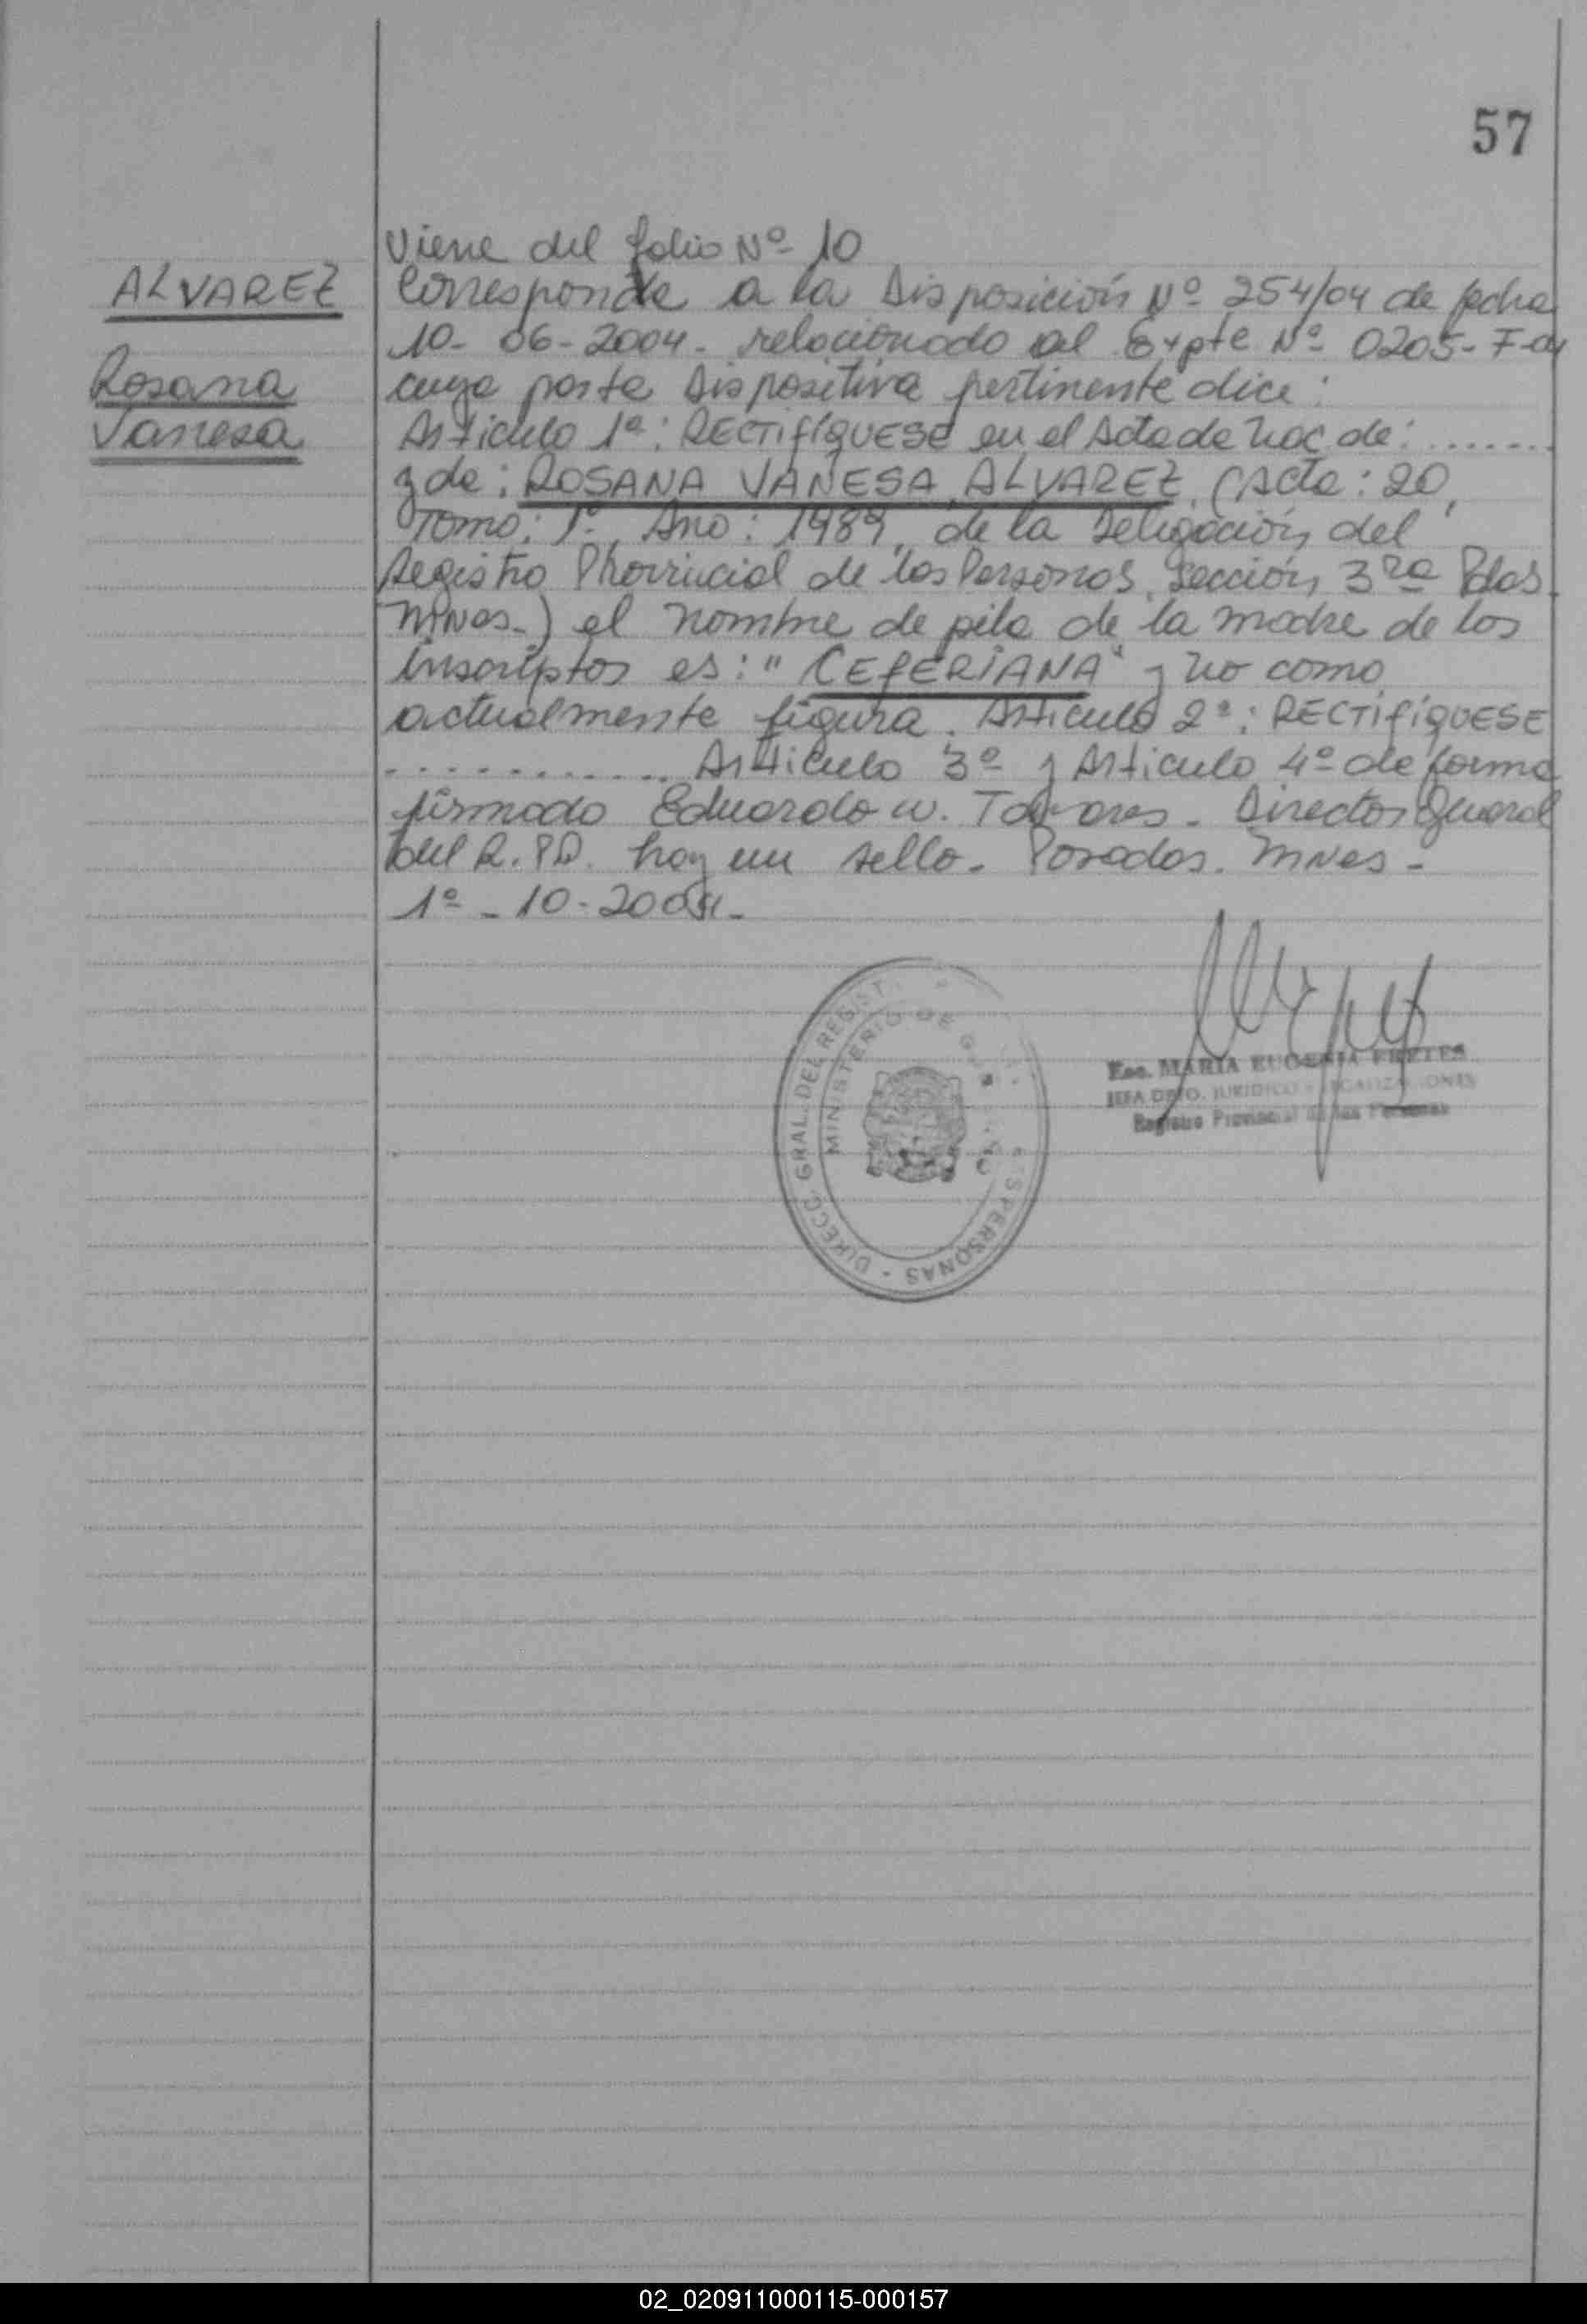 57
ALVAREZ
Rosana
Vanesa
Viene del folio Nº 10
Corresponde a la Disposición Nº 254/04 de fecha
10-06-2004- relacionado al Expte Nº 0205-F-04
cuya parte Dispositiva pertinente dice:
Artículo 1º: RECTIFÍQUESE en el Acta de Nac. de: .......
y de: ROSANA VANESA ALVAREZ (Acta: 20,
Tomo: 1º, Año: 1989, de la Delegación del
Registro Provincial de las Personas, Sección 3ra Pdas
Mnes.) el nombre de pila de la madre de los
inscriptos es: "CEFERIANA" y no como
actualmente figura. Artículo 2º: RECTIFÍQUESE
............ Artículo 3º y Artículo 4º de forma
firmado Eduardo W. Director General
del R.P.P. hay un sello. Posadas. Mnes-
1º-10-2004-
DIRECC. GRAL. DEL REGIST PERSONAS
MINISTERIO DE
Esc. MARIA EUGENIA FRETES
JEFA DPTO. JURIDICO LEGALIZACIONES
Registro Provincial de las Personas
02_020911000115-000157